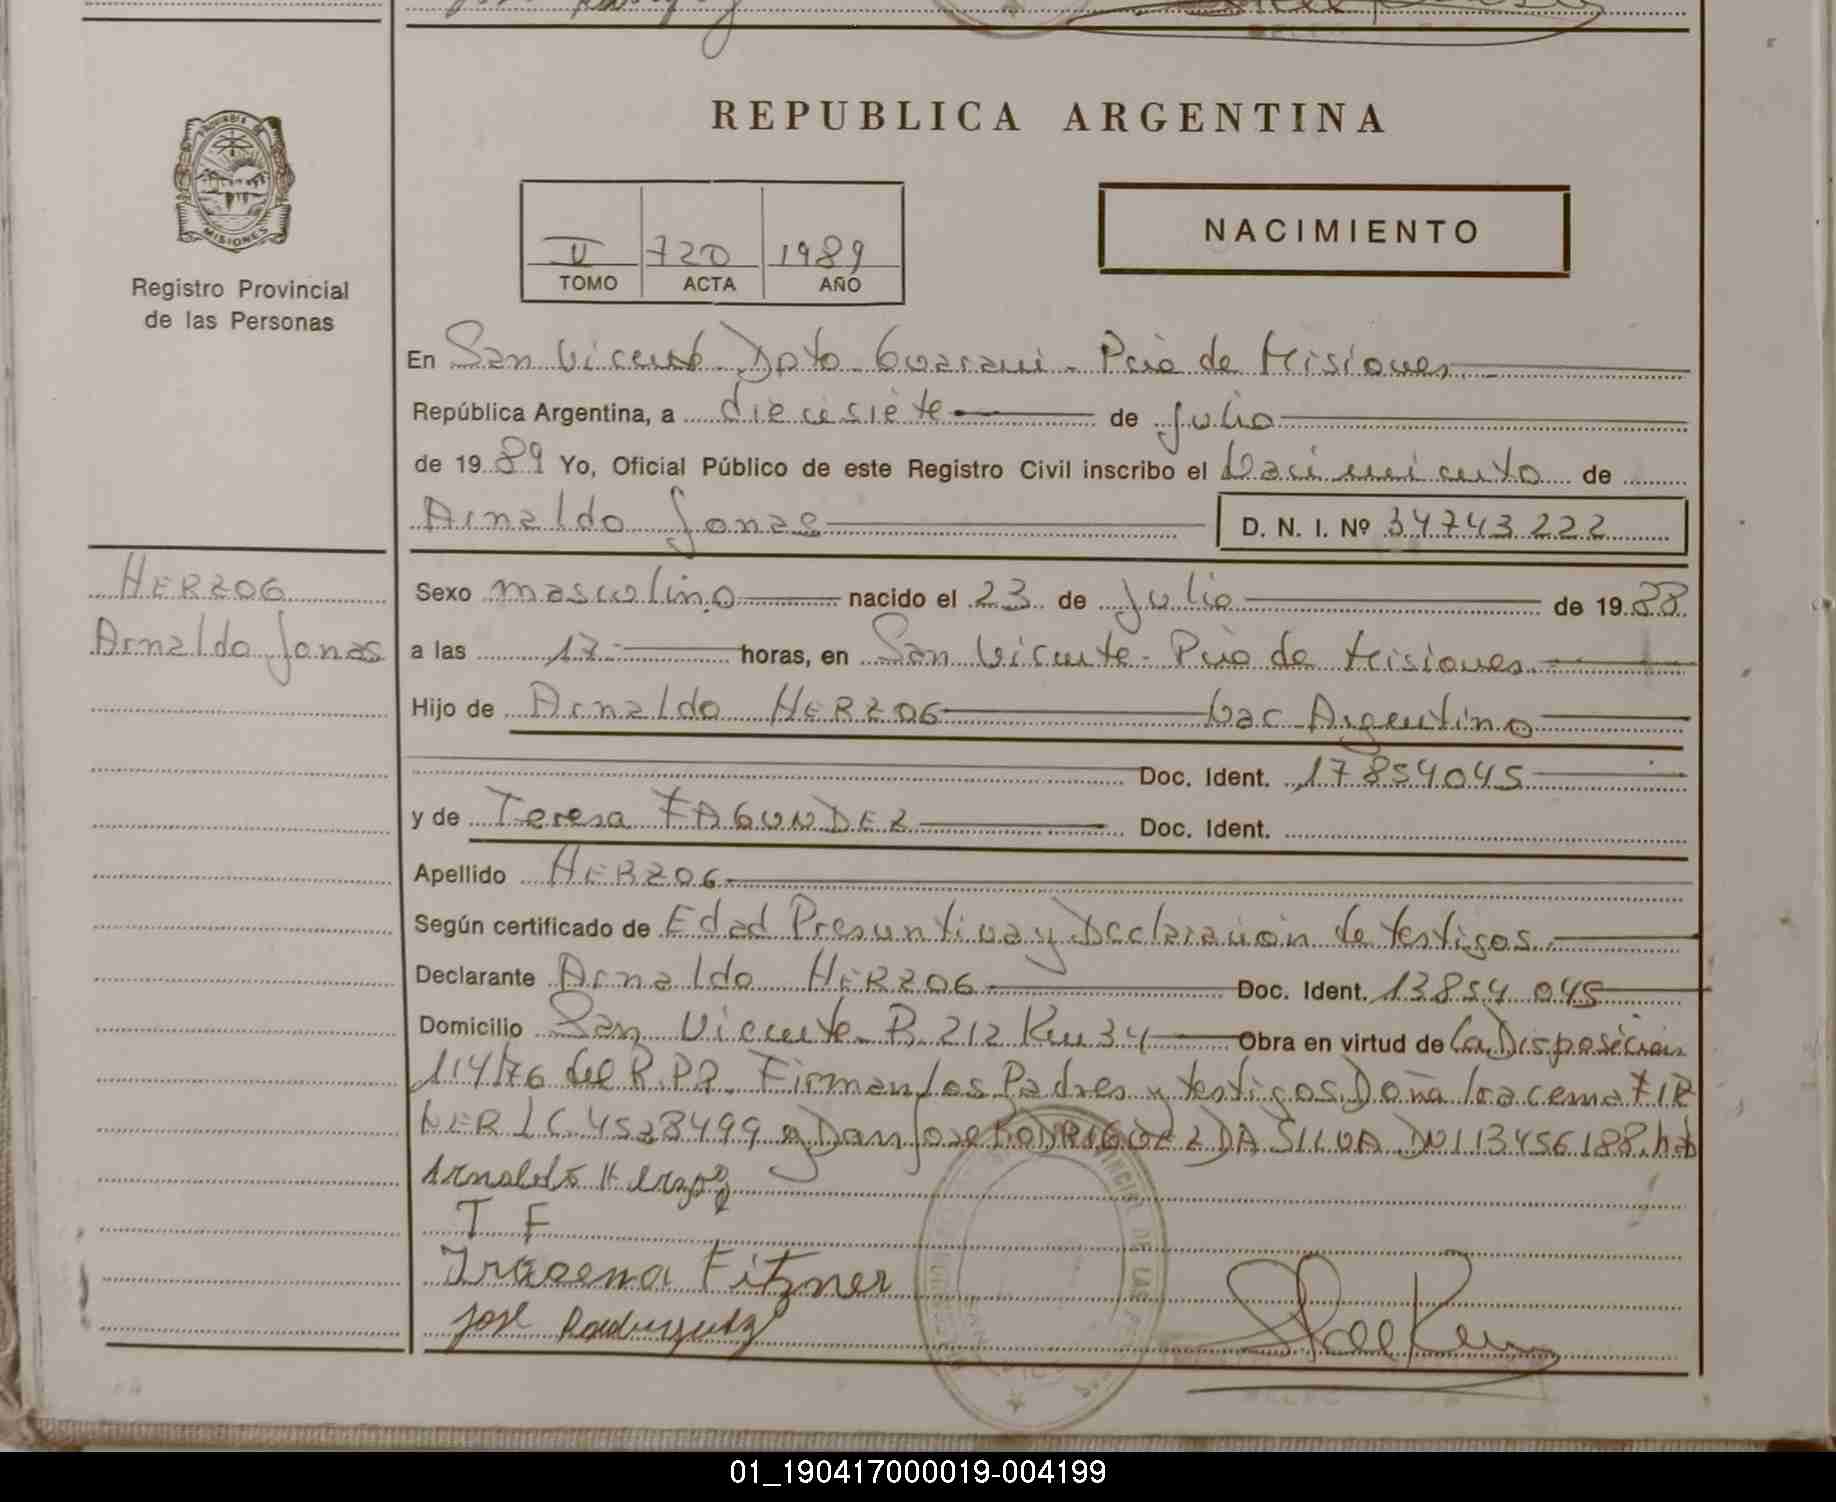 REPUBLICA ARGENTINA
PROVINCIA DE
MISIONES
Registro Provincial
de las Personas
NACIMIENTO
II 720 1989
TOMO ACTA AÑO
En San Vicente Dpto Guarani - Pcia de Misiones
República Argentina, a diecisiete de Julio
de 1989 Yo, Oficial Público de este Registro Civil inscribo el Nacimiento de
Arnaldo Jonas D. N. I. Nº 34743222
HERZOG
Arnaldo Jonas
Sexo masculino nacido el 23 de Julio de 1988
a las 17 horas, en San Vicente - Pcia de Misiones
Hijo de Arnaldo HERZOG Nac Argentino
Doc. Ident. 17854045
y de Teresa FAGUNDEZ Doc. Ident.
Apellido HERZOG
Según certificado de Edad Presuntiva y Declaración de testigos
Declarante Arnaldo HERZOG Doc. Ident. 13854045
Domicilio San Vicente R. 212 Km 34 Obra en virtud de La Disposición
114/76 del R.P.P. Firman los Padres y testigos Doña Iracema FIR
NER LC 4528499 y Don Jose RODRIGUEZ DA SILVA DNI 13456188
Arnaldo Herzog
T F
Iracema Fitzner
Jose
01_190417000019-004199